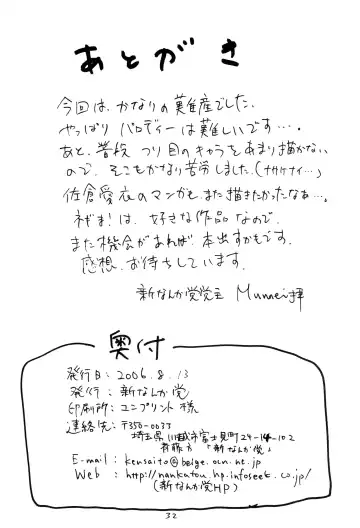 あとがき
今回は、かなりの難産でした。
やっぱり パロディーは難しいです…。
あと、普段 つり目のキャラをあまり描かない
ので、そこもかなり苦労しました。(ナサケナイ…)
佐倉愛衣のマンガも、また描きたかったなぁ…。
ネギま!は、好きな作品なので、
また機会があれば、本出すかもです。
感想、お待ちしています。
新なんか党党主 Munmei拝
奥付
発行日: 2006.8.13
発行: 新なんか党
印刷所: ユニプリント様
連絡先: 〒350-0033
埼玉県川越市富士見町24-14-102
斉藤方 「新なんか党」
E-mail: kensaito@beige.ocn.ne.jp
Web : http://nankatou.hp.infoseek.co.jp/
(新なんか党HP)
32